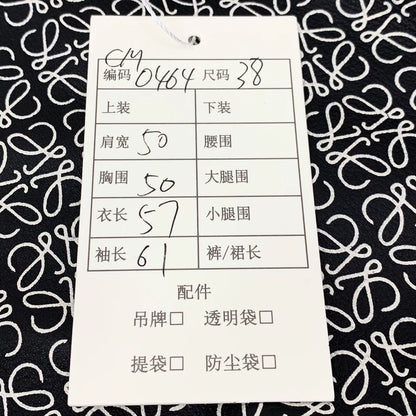 CM
编码 0464 尺码 38
上装 下装
肩宽 50 腰围
胸围 50 大腿围
衣长 57 小腿围
袖长 61 裤/裙长
配件
吊牌□ 透明袋□
提袋□ 防尘袋□